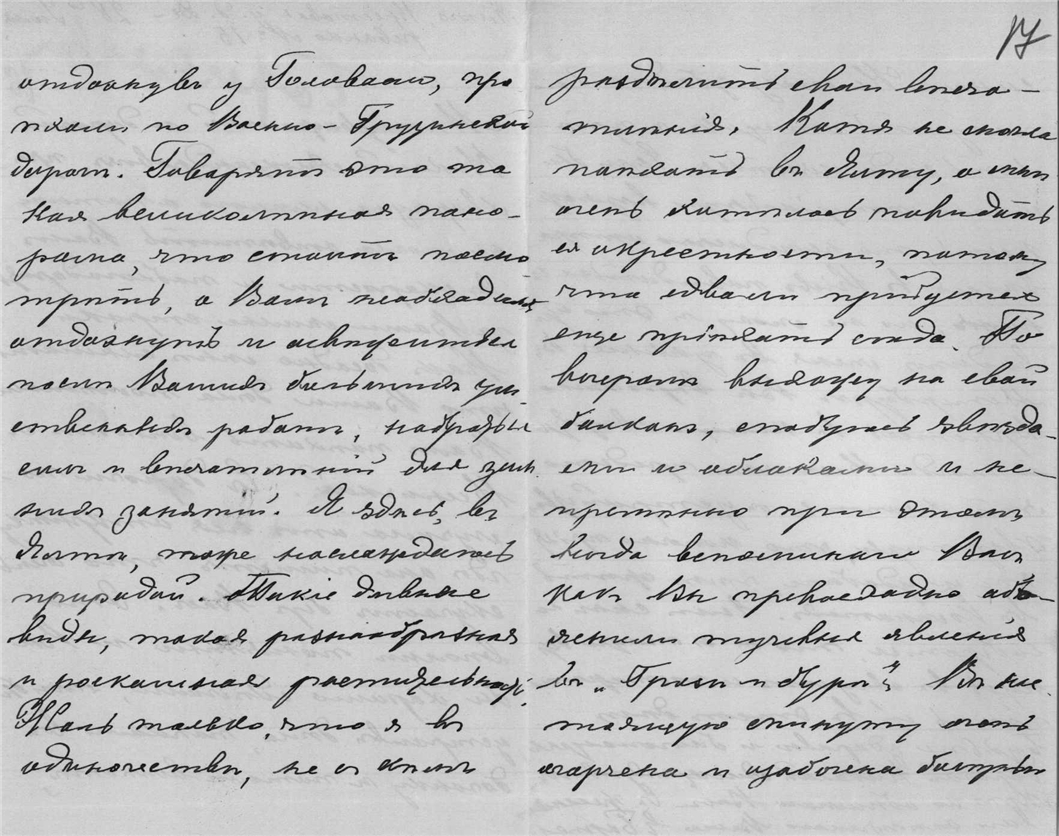 отдохнувъ у Головани, про
ехали по Военно-Грузинской
дороге. Говорятъ это та
кая великолепная пано-
рама, что стоитъ посмо
треть, а Вамъ необходимо
отдохнуть и освежиться
после Вашихъ большихъ ум-
ственныхъ работъ, набраться
силъ и впечатленій для зим
нихъ занятій. Я здесь, въ
Ялте, тоже наслаждаюсь
природой. Такіе дивные
виды, такая разнообразная
и роскошная растительность,
Жаль только, что я въ
одиночестве, не съ кемъ
17
разделить свои впеча-
тленія. Катя не могла
поехать въ Ялту, а мне
очень хотелось повидать
ея окрестности, потому
что едва ли придется
еще пріехать сюда. По
вечерамъ выхожу на свой
балконъ, любуюсь звезда-
ми и облаками и не-
пременно при этомъ
всегда вспоминаю Васъ
какъ Вы превосходно объ-
яснили тучевыя явленія
въ „Грозы и бури“. Въ нас
тоящую минуту очень
огорчена и озабочена быстрымъ